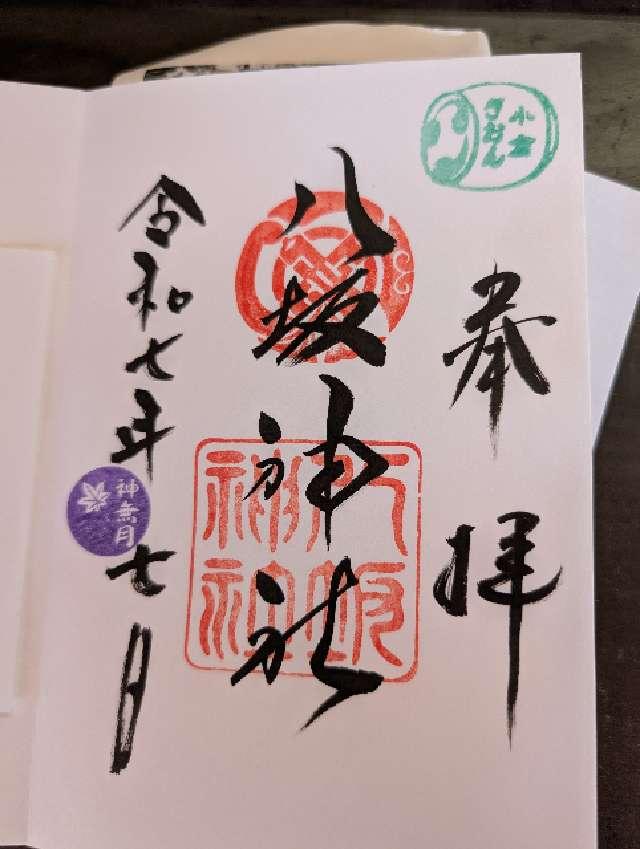 小倉
ぎおん
奉拝
八坂神社
八坂
神社
令和七年
神無月
七日